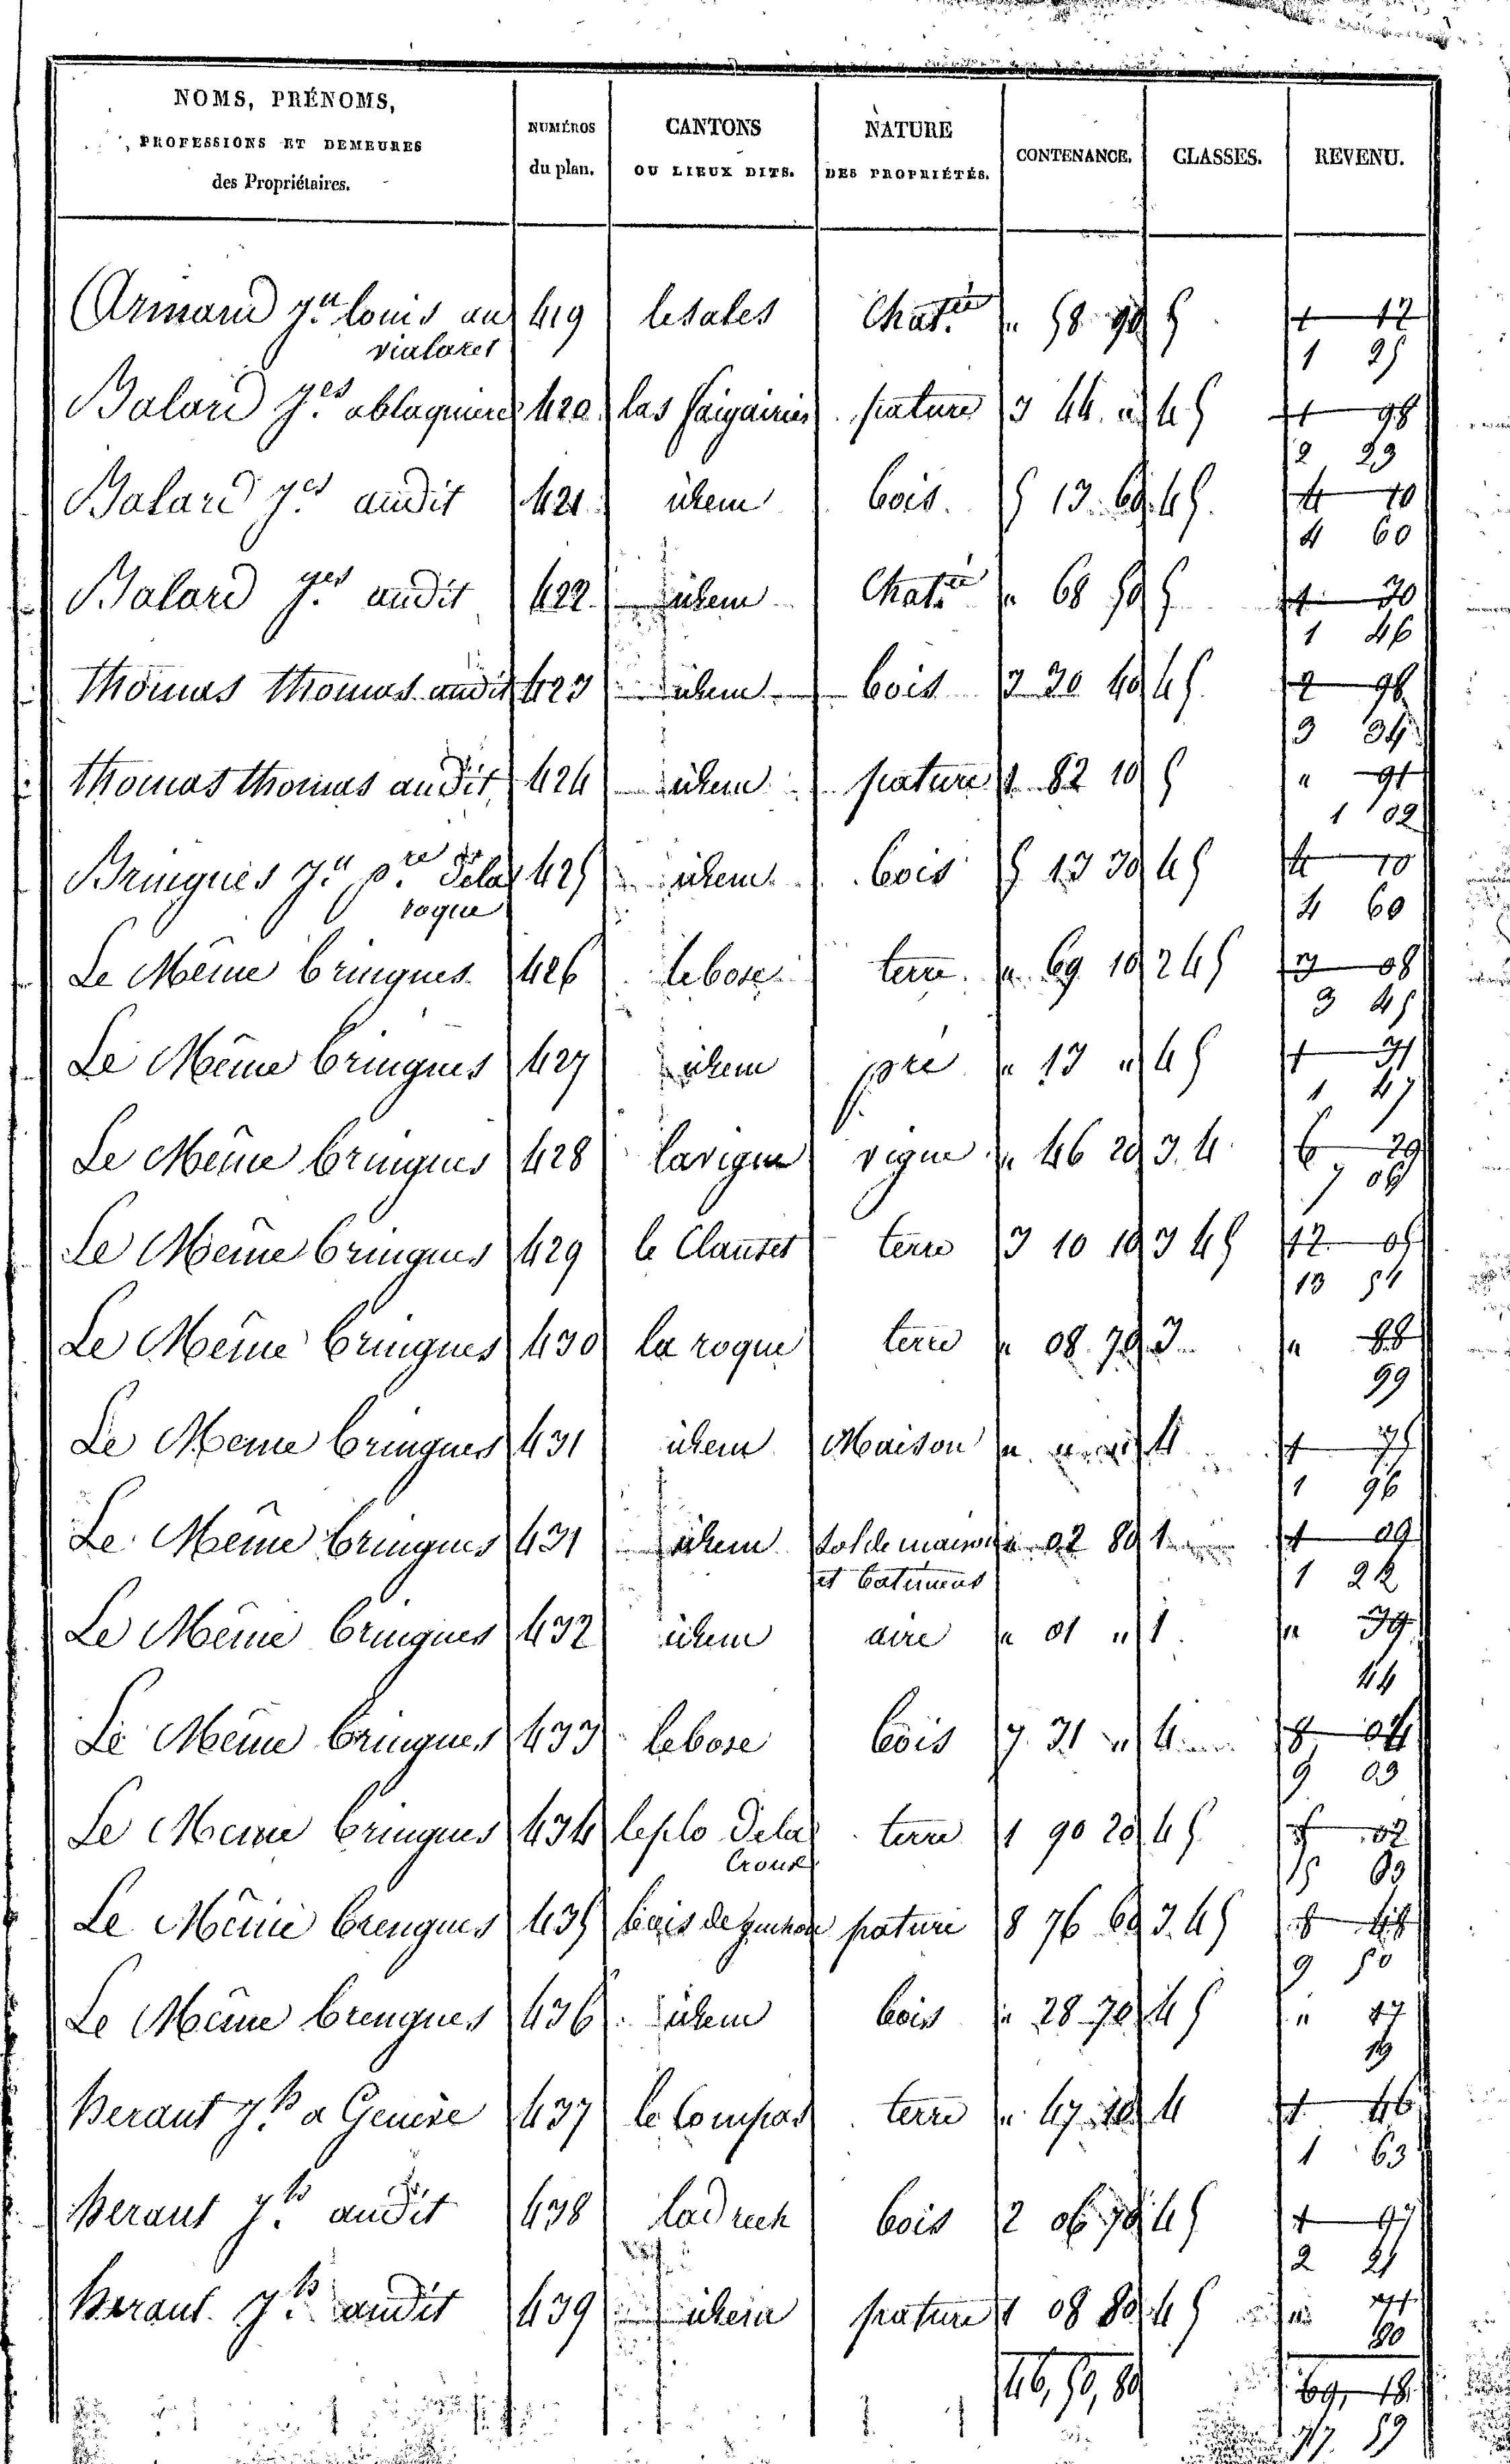 NOMS, PRÉNOMS, PROFESSIONS ET DEMEURES des Propriétaires. NUMÉROS du plan. CANTONS OU LIEUX DITS. NATURE DES PROPRIÉTÉS. CONTENANCE. CLASSES. REVENU.
Armand jn louis au 419 lesales Chatie " 58 90 5 1 12
vialaret 1 25
Balard jes ablaquiere 420 las faigairies pature 3 44 " 4 5 1 98
2 23
Balard jes audit 421 idem bois 5 13 60 4 5 4 10
4 60
Balard jes audit 422 idem Chatie " 68 50 5 1 30
1 46
thomas thomas audit 423 idem bois 3 30 40 4 5 2 98
3 34
thomas thomas audit 424 idem pature 1 82 10 5 " 91
1 02
Bringues jn pre dela 425 idem bois 5 13 30 4 5 4 10
roque 4 60
Le Même bringues 426 lebosc terre " 69 10 2 4 5 3 08
3 45
Le Même bringues 427 idem pré " 13 " 4 5 1 31
1 47
Le Même bringues 428 lavigne vigne " 46 20 3. 4 6 29
7 06
Le Même bringues 429 le Clauset terre 3 10 10 3 4 5 12 05
13 54
Le Même bringues 430 la roque terre " 08 70 3 " 88
99
Le Meme bringues 431 idem Maison " " " 4 1 75
1 96
Le Même bringues 431 idem sol de maison " 02 80 1 1 09
et batimens 1 22
Le Même bringues 432 idem aire " 01 " 1 " 39
44
Le Même bringues 433 lebosc bois 7 31 " 4 8 04
9 03
Le Meme bringues 434 leplo dela terre 1 90 20 4 5 5 02
Croux 5 63
Le Même brengues 435 pature 8 76 60 3. 4 5 8 48
9 50
Le Même brengues 436 idem bois " 28 70 4 5 " 17
19
Beraut jh a Genève 437 le Compas terre " 47 10 4 1 46
1 63
Beraut jh audit 438 ladrech bois 2 06 70 4 5 1 97
2 21
Beraut jh audit 439 idem pature 1 08 80 4 5 " 71
80
46, 50, 80 69, 18
77. 59